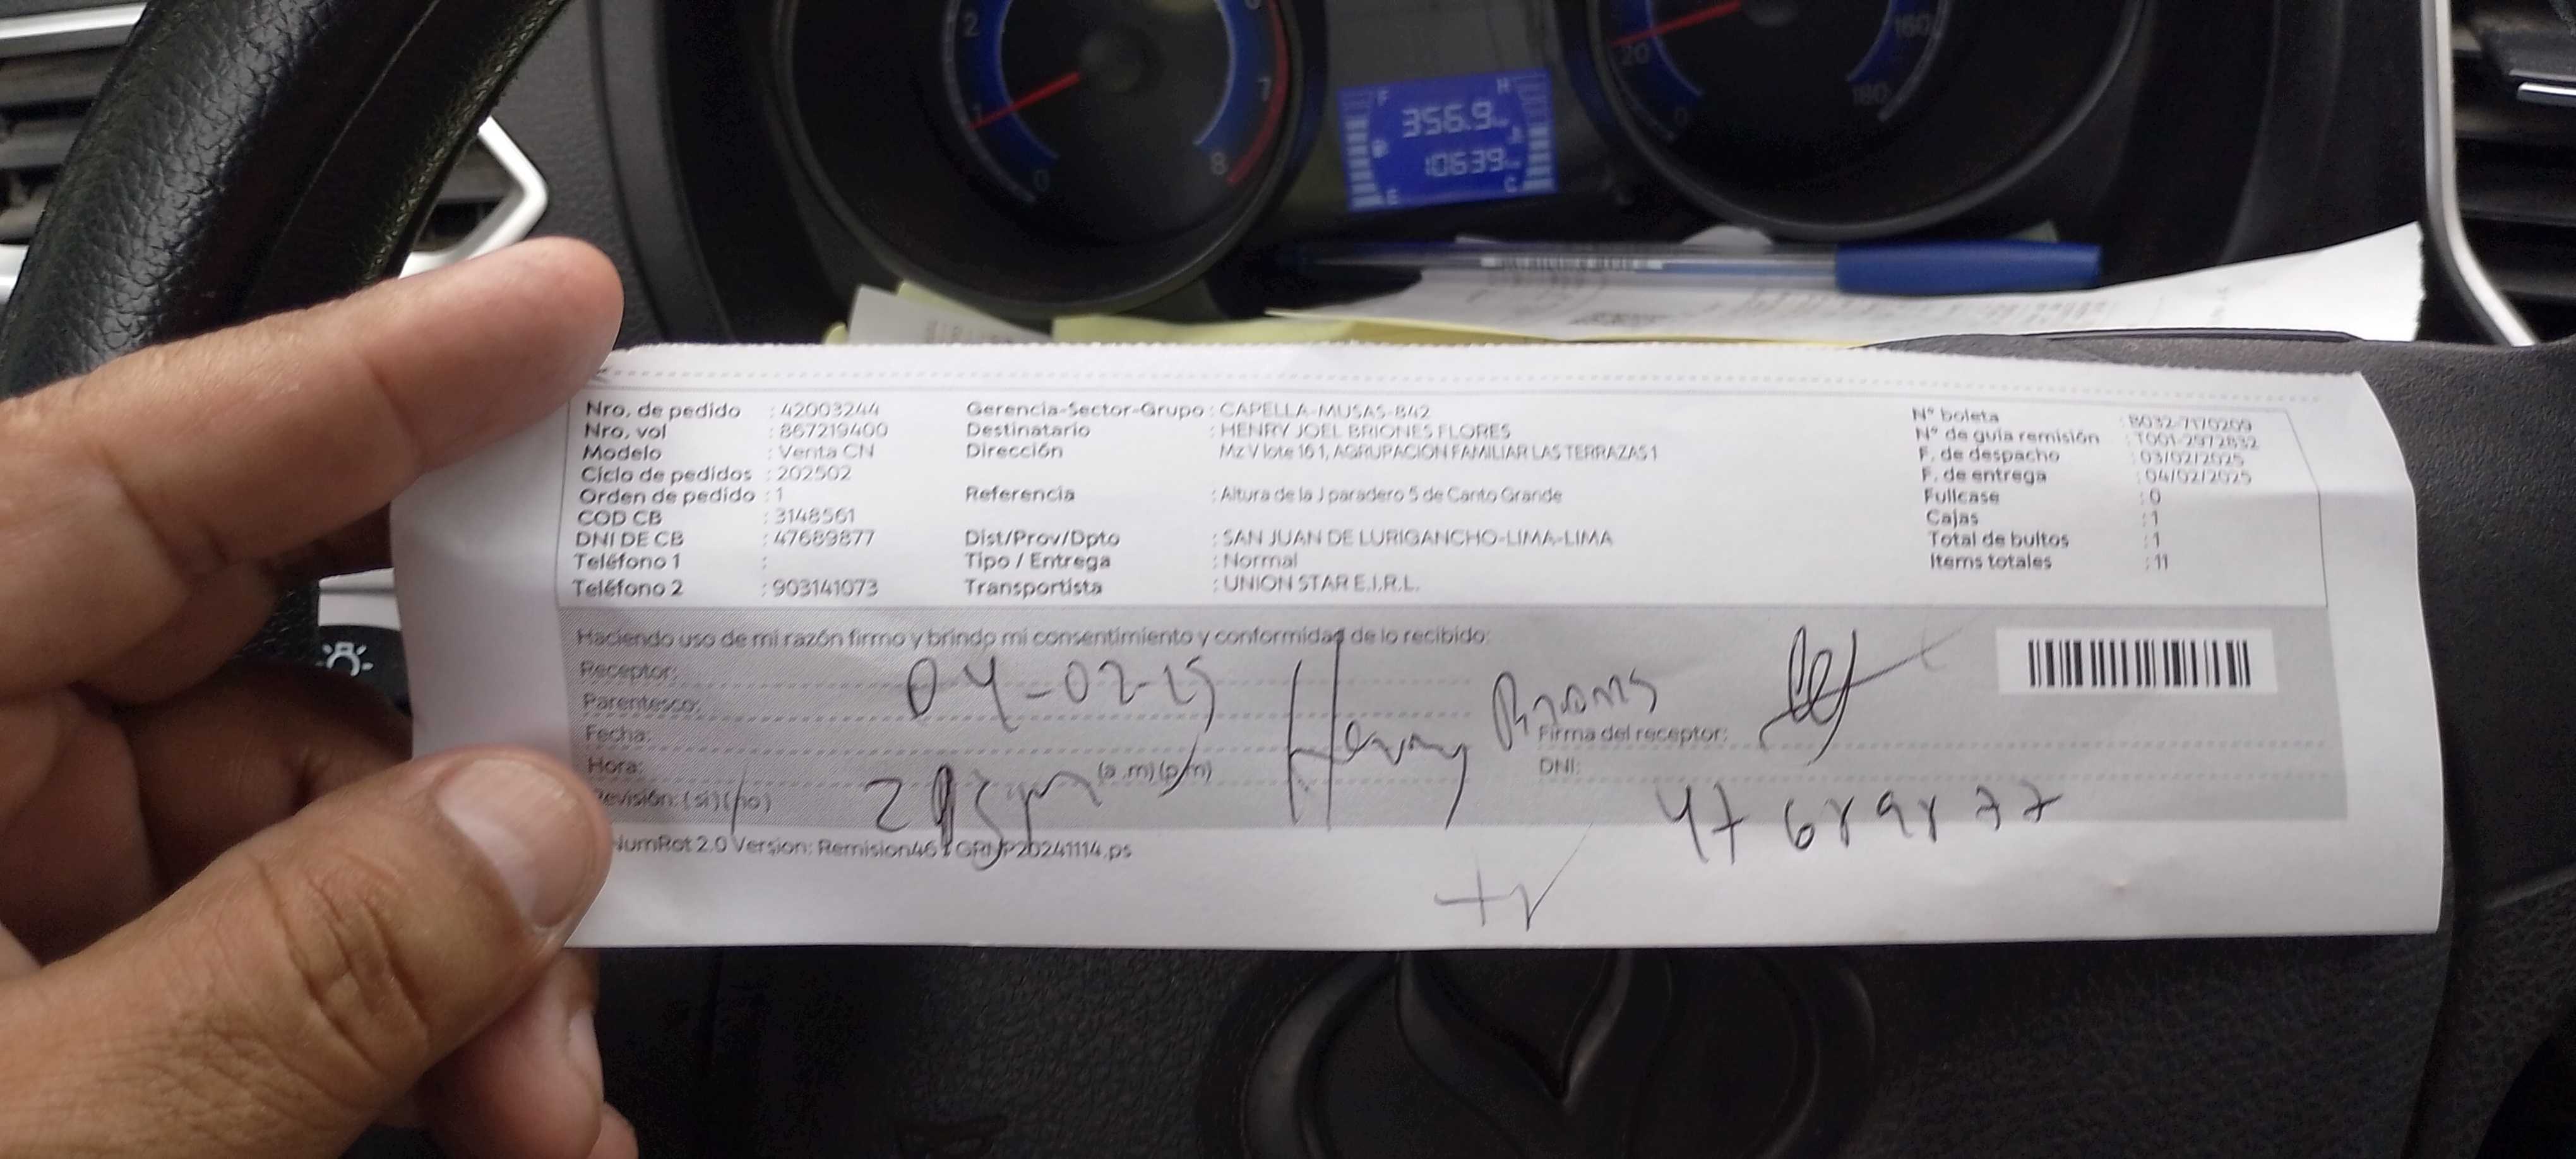 2
1
0
6
7
8
F
H
356.9
10639
E
C
20
0
160
180
Nro. de pedido : 42003244
Nro. vol : 867219400
Modelo : Venta CN
Ciclo de pedidos : 202502
Orden de pedido : 1
COD CB : 3148561
DNI DE CB : 47689877
Teléfono 1 :
Teléfono 2 : 903141073
Gerencia-Sector-Grupo : CAPELLA-MUSAS-842
Destinatario : HENRY JOEL BRIONES FLORES
Dirección Mz V lote 16 1, AGRUPACION FAMILIAR LAS TERRAZAS 1
Referencia : Altura de la J paradero 5 de Canto Grande
Dist/Prov/Dpto : SAN JUAN DE LURIGANCHO-LIMA-LIMA
Tipo / Entrega : Normal
Transportista : UNION STAR E.I.R.L.
N° boleta : B032-7170209
N° de guía remisión : T001-2972832
F. de despacho : 03/02/2025
F. de entrega : 04/02/2025
Fullcase : 0
Cajas : 1
Total de bultos : 1
Items totales : 11
Haciendo uso de mi razón firmo y brindo mi consentimiento y conformidad de lo recibido:
Receptor:
Parentesco: 04-02-25
Fecha: Henry Briones Firma del receptor:
Hora: (a.m)(p.m) DNI: 47689877
Revisión: (si)(no)
NumRot 2.0 Version: Remision46